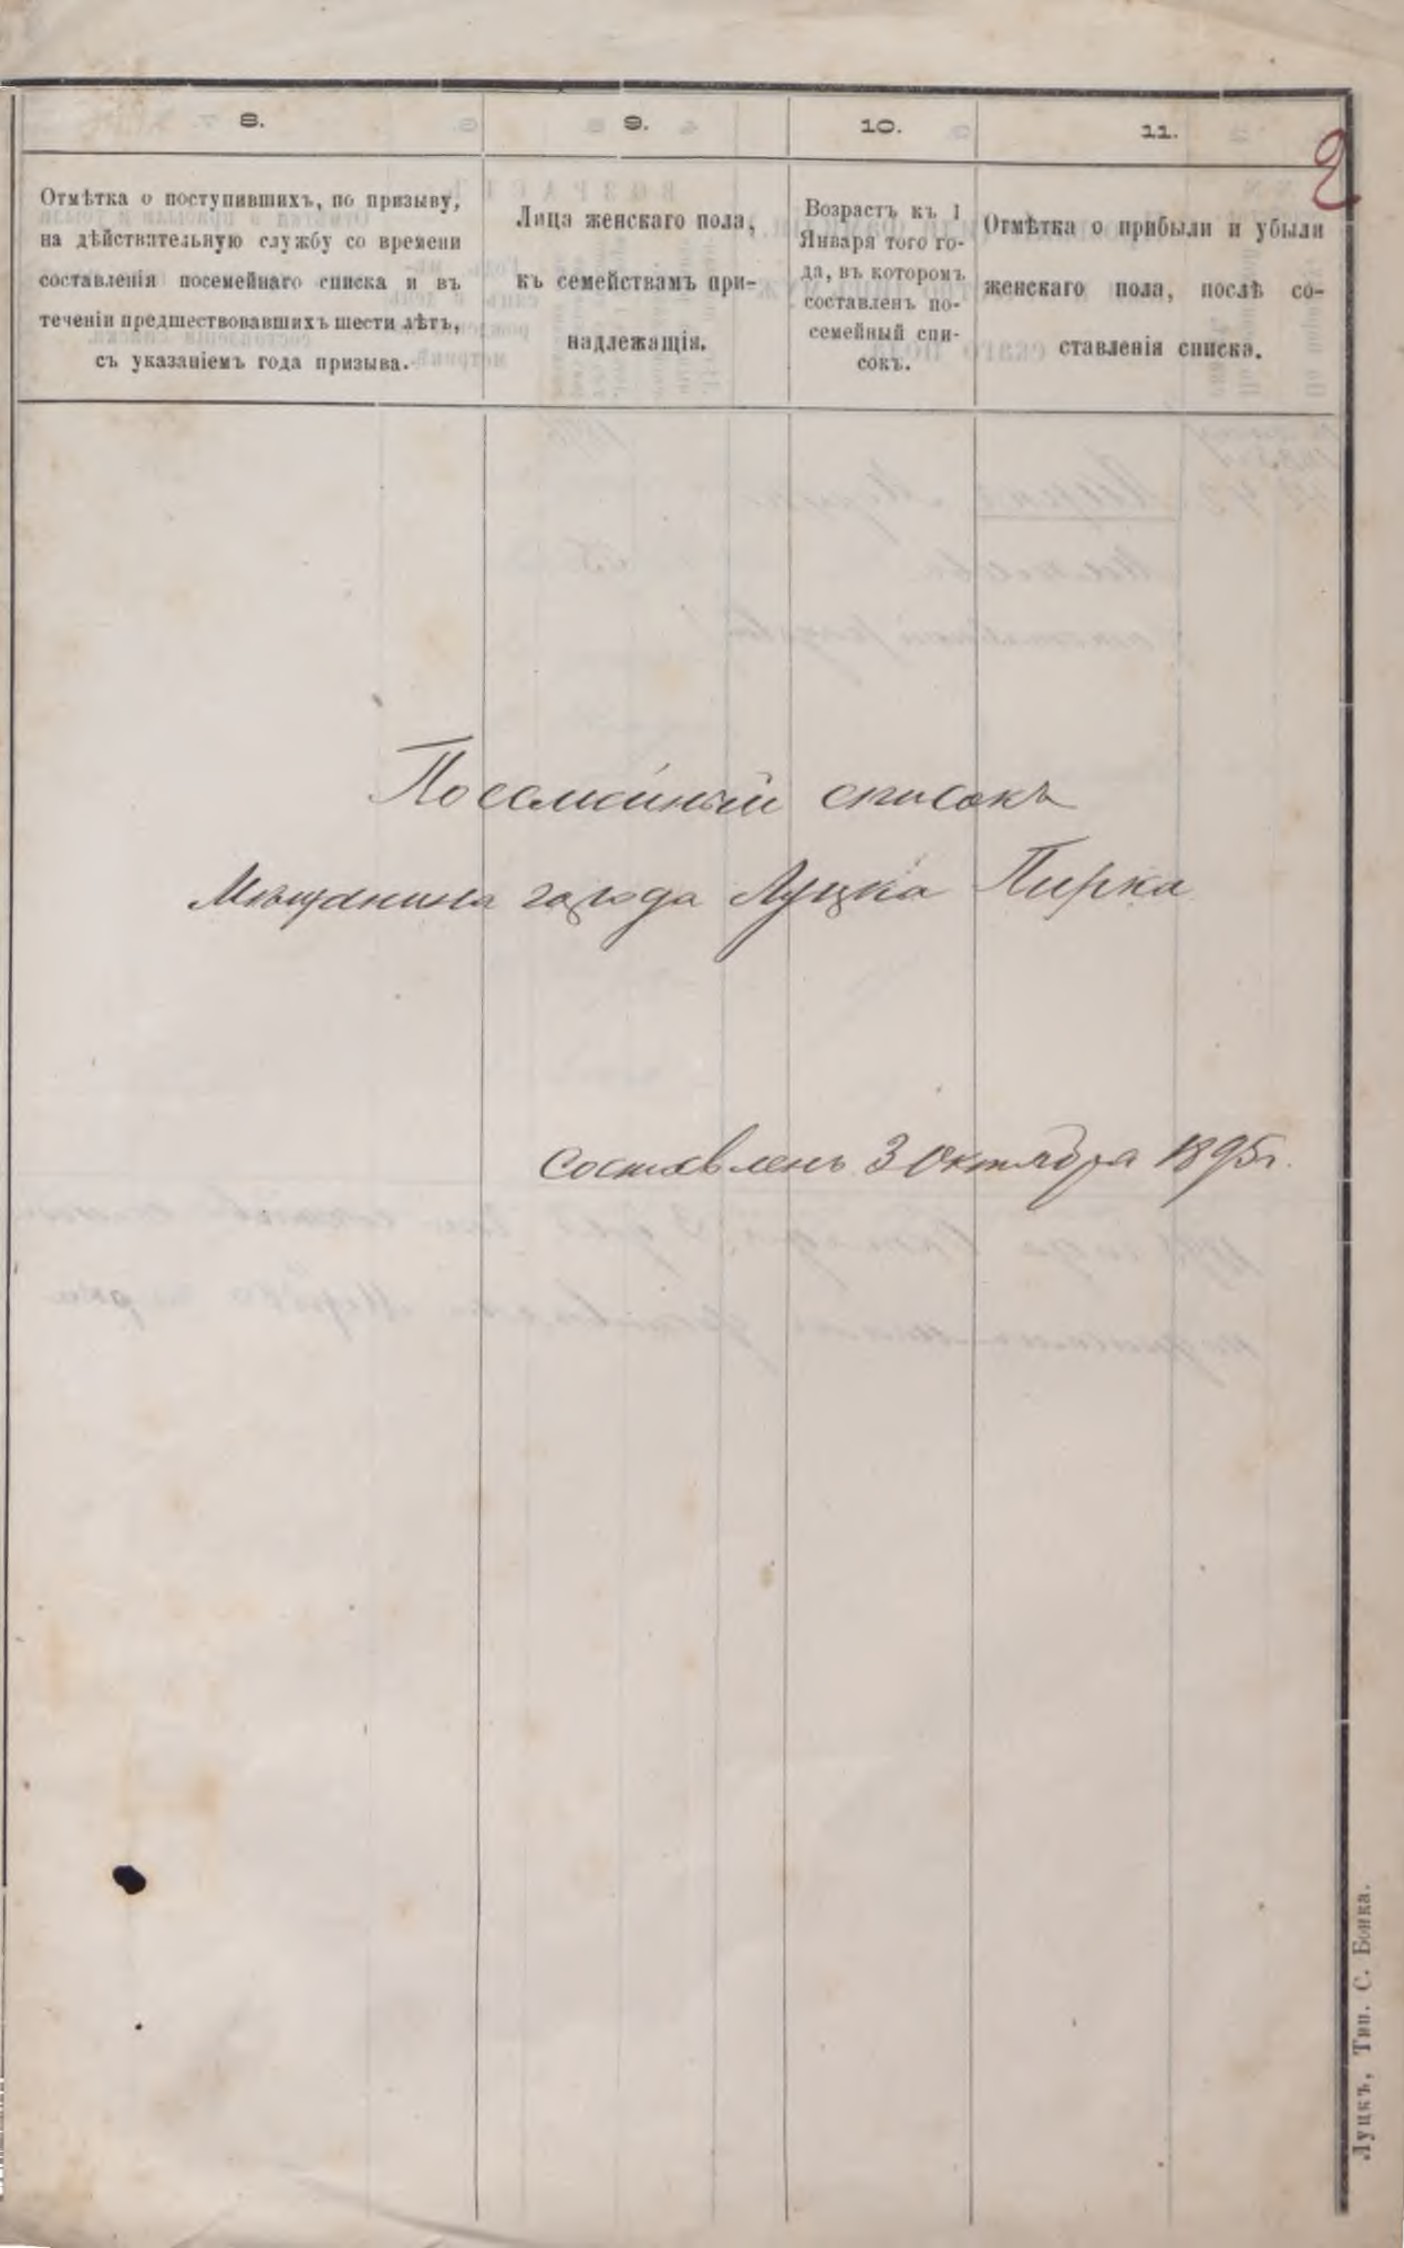 8.
9.
10.
11.
2
Отмѣтка о поступившихъ, по призыву,
на дѣйствительную службу со времени
составленія посемейнаго списка и въ
теченіи предшествовавшихъ шести лѣтъ,
съ указаніемъ года призыва.
Лица женскаго пола,
къ семействамъ при-
надлежащія.
Возрастъ къ 1
Января того го-
да, въ которомъ
составленъ по-
семейный спи-
сокъ.
Отмѣтка о прибыли и убыли
женскаго пола, послѣ со-
ставленія списка.
Посемейный списокъ
Мѣщанина города Луцка Пирка
составленъ 3 Октября 1895 г.
Луцкъ, Тип. С. Бонка.